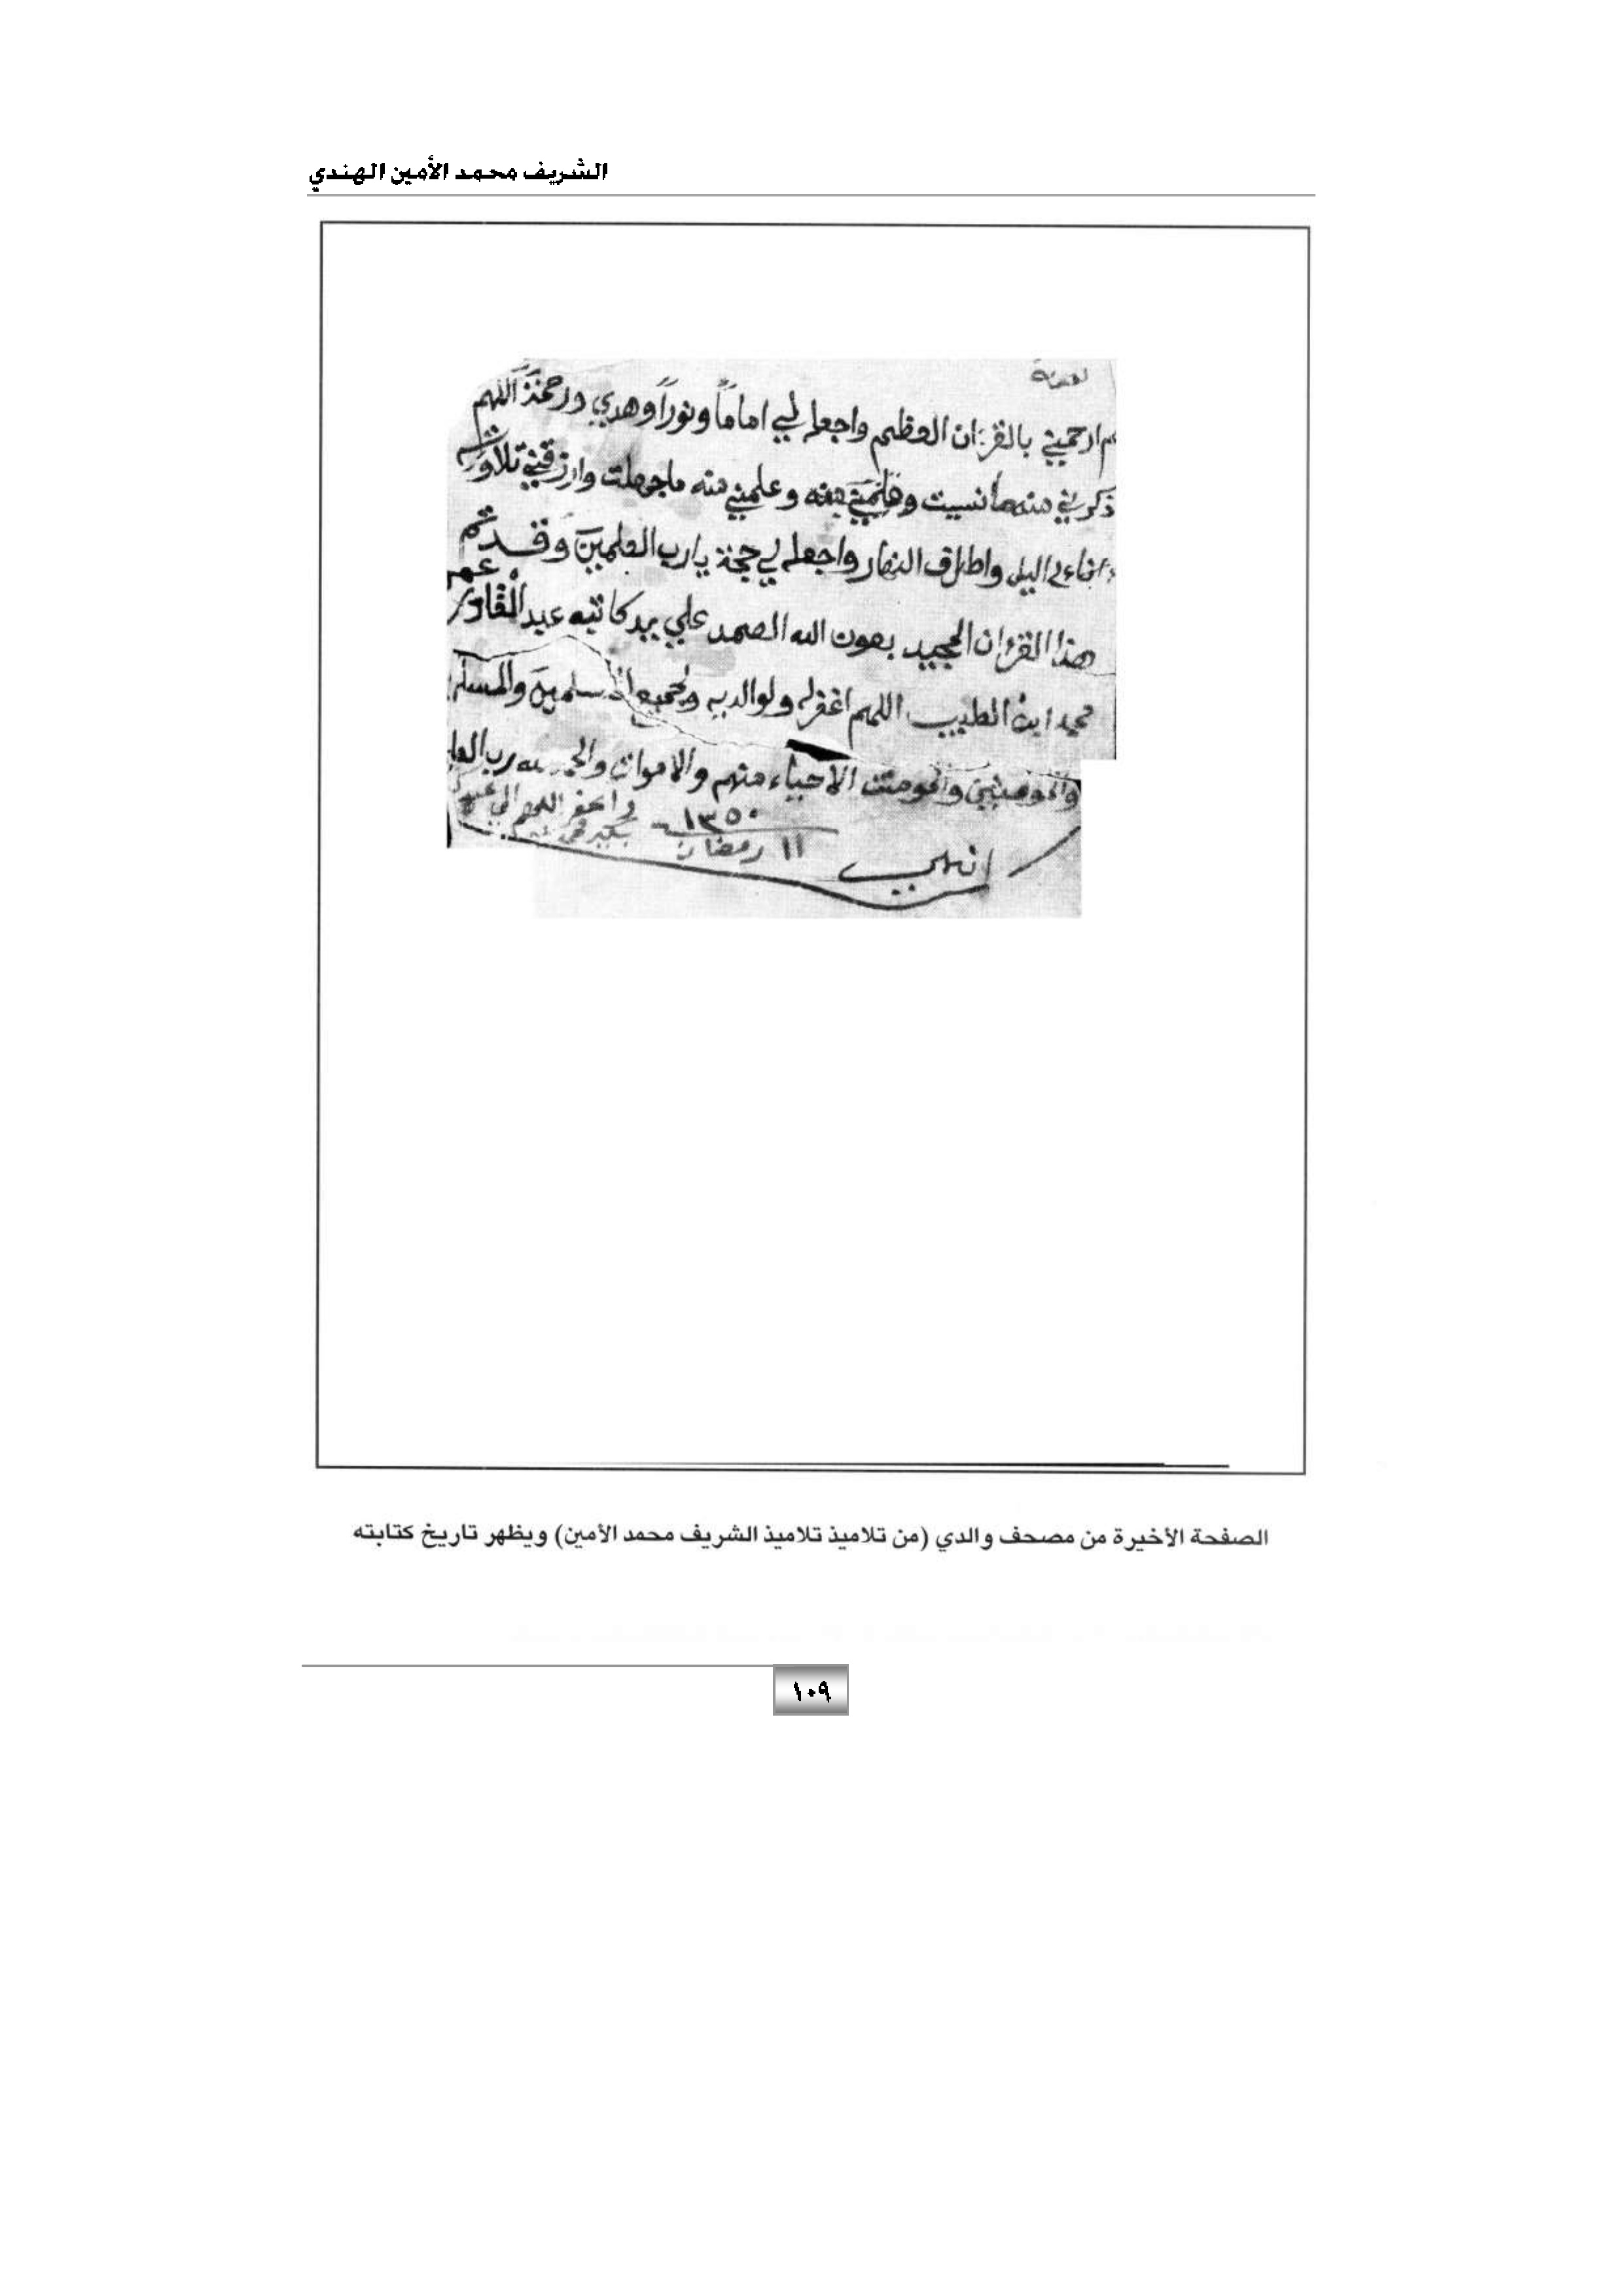 الشريف محمد الأمين الهندي
ارحميني بالقرءان العظيم واجعله لي اماماً ونوراً وهدي ورحمة اللهم
ذكرني منه ما نسيت وعلمني منه ماجهلت وارزقني تلاوته
اناء اليل واطراف النهار واجعله لي حجة يارب العلمين وقد تم
هذا القرءان المجيد بعون الله الصمد علي يد كاتبه عبد القادر عمر
محمد ابن الطيب اللهم اغفرله ولوالديه ولجميع المسلمين والمسلم
والمومنين والمومنت الاحياء منهم والاموات رب العلم
١٣٥٠
١١ رمضان
انتهي
الصفحة الأخيرة من مصحف والدي (من تلاميذ تلاميذ الشريف محمد الأمين) ويظهر تاريخ كتابته
١٠٩